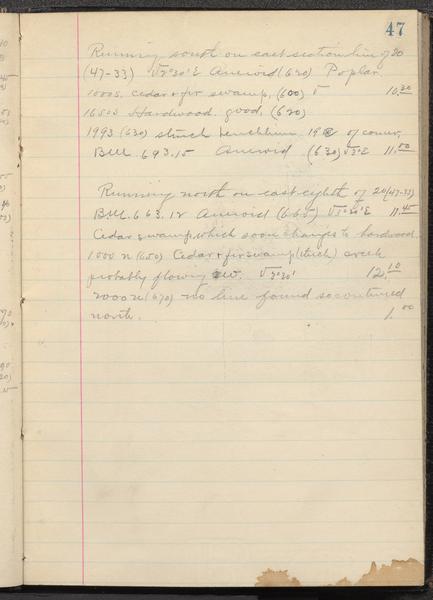 47
Running south on east section line of 20
(47-33) V3°30'E Aneroid (620) Poplar.
1000 S. Cedar + fir swamp, (600) 10.30
1650 S Hardwood. good, (620)
1993 (630) struck benchline 19 of corner,
B.M. 693.15 Aneroid (630) V3°E 11.00
Running north on east eighth of 20 (47-33)
B.M. 663.12 Aneroid (665) V3°30'E 11.45
Cedar swamp, which soon changes to hardwood
1000 N (650) Cedar + fir swamp (struck) creek
probably flowing W. V3°30' 12.10
2000 N (670) no line found so continued
north. 1.00